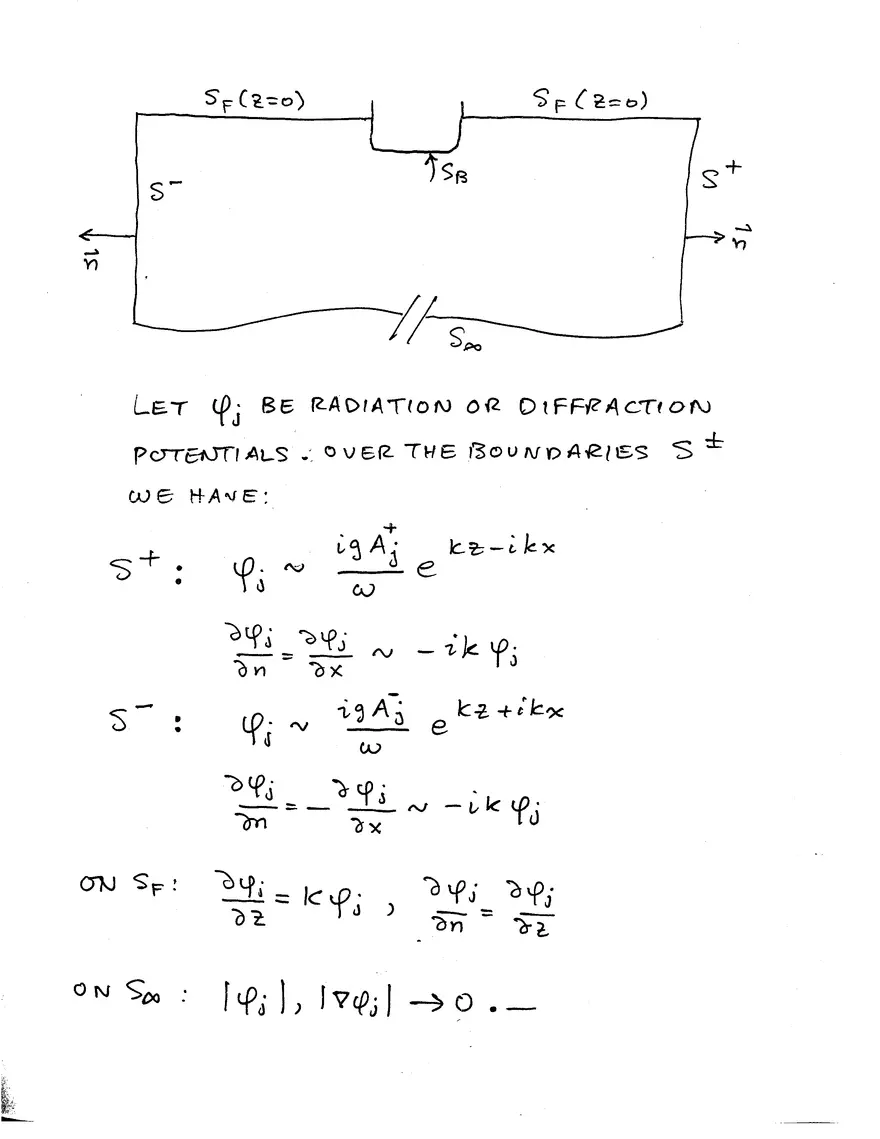 S_F (z=0) S_F (z=0)
S_B
S⁻ S⁺
n⃗ n⃗
S_∞
LET φ_j BE RADIATION OR DIFFRACTION
POTENTIALS. OVER THE BOUNDARIES S^±
WE HAVE:
S⁺ : φ_j ~ (igA_j⁺/ω) e^{kz-ikx}
∂φ_j/∂n = ∂φ_j/∂x ~ -ikφ_j
S⁻ : φ_j ~ (igA_j⁻/ω) e^{kz+ikx}
∂φ_j/∂n = -∂φ_j/∂x ~ -ikφ_j
ON S_F : ∂φ_j/∂z = kφ_j , ∂φ_j/∂n = ∂φ_j/∂z
ON S_∞ : |φ_j|, |∇φ_j| → 0 . —